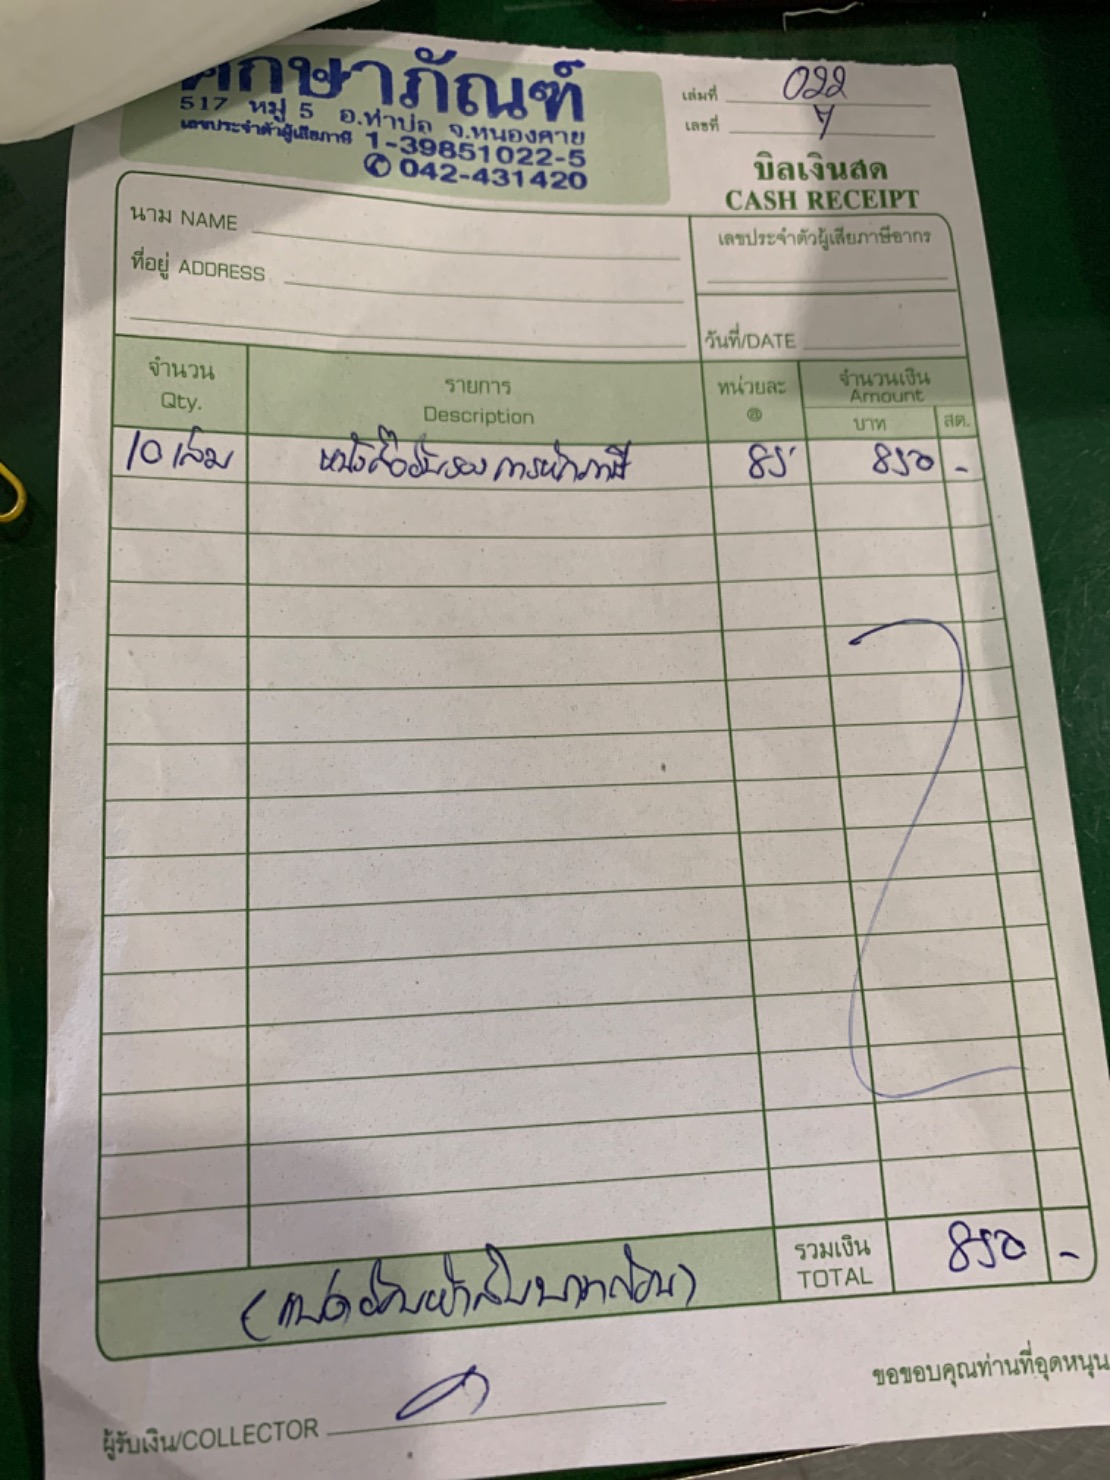 ศึกษาภัณฑ์
517 หมู่ 5 อ.ท่าบ่อ จ.หนองคาย
เลขประจำตัวผู้เสียภาษี 1-39851022-5
042-431420
เล่มที่ 022
เลขที่
บิลเงินสด
CASH RECEIPT
นาม NAME
ที่อยู่ ADDRESS
เลขประจำตัวผู้เสียภาษีอากร
วันที่/DATE
จำนวน
Qty.
รายการ
Description
หน่วยละ
@
จำนวนเงิน
Amount
บาท
สต.
10 เล่ม หนังสือรับรองการหักภาษี 85 850 -
รวมเงิน
TOTAL
850 -
(แปดร้อยห้าสิบบาทถ้วน)
ขอขอบคุณท่านที่อุดหนุน
ผู้รับเงิน/COLLECTOR